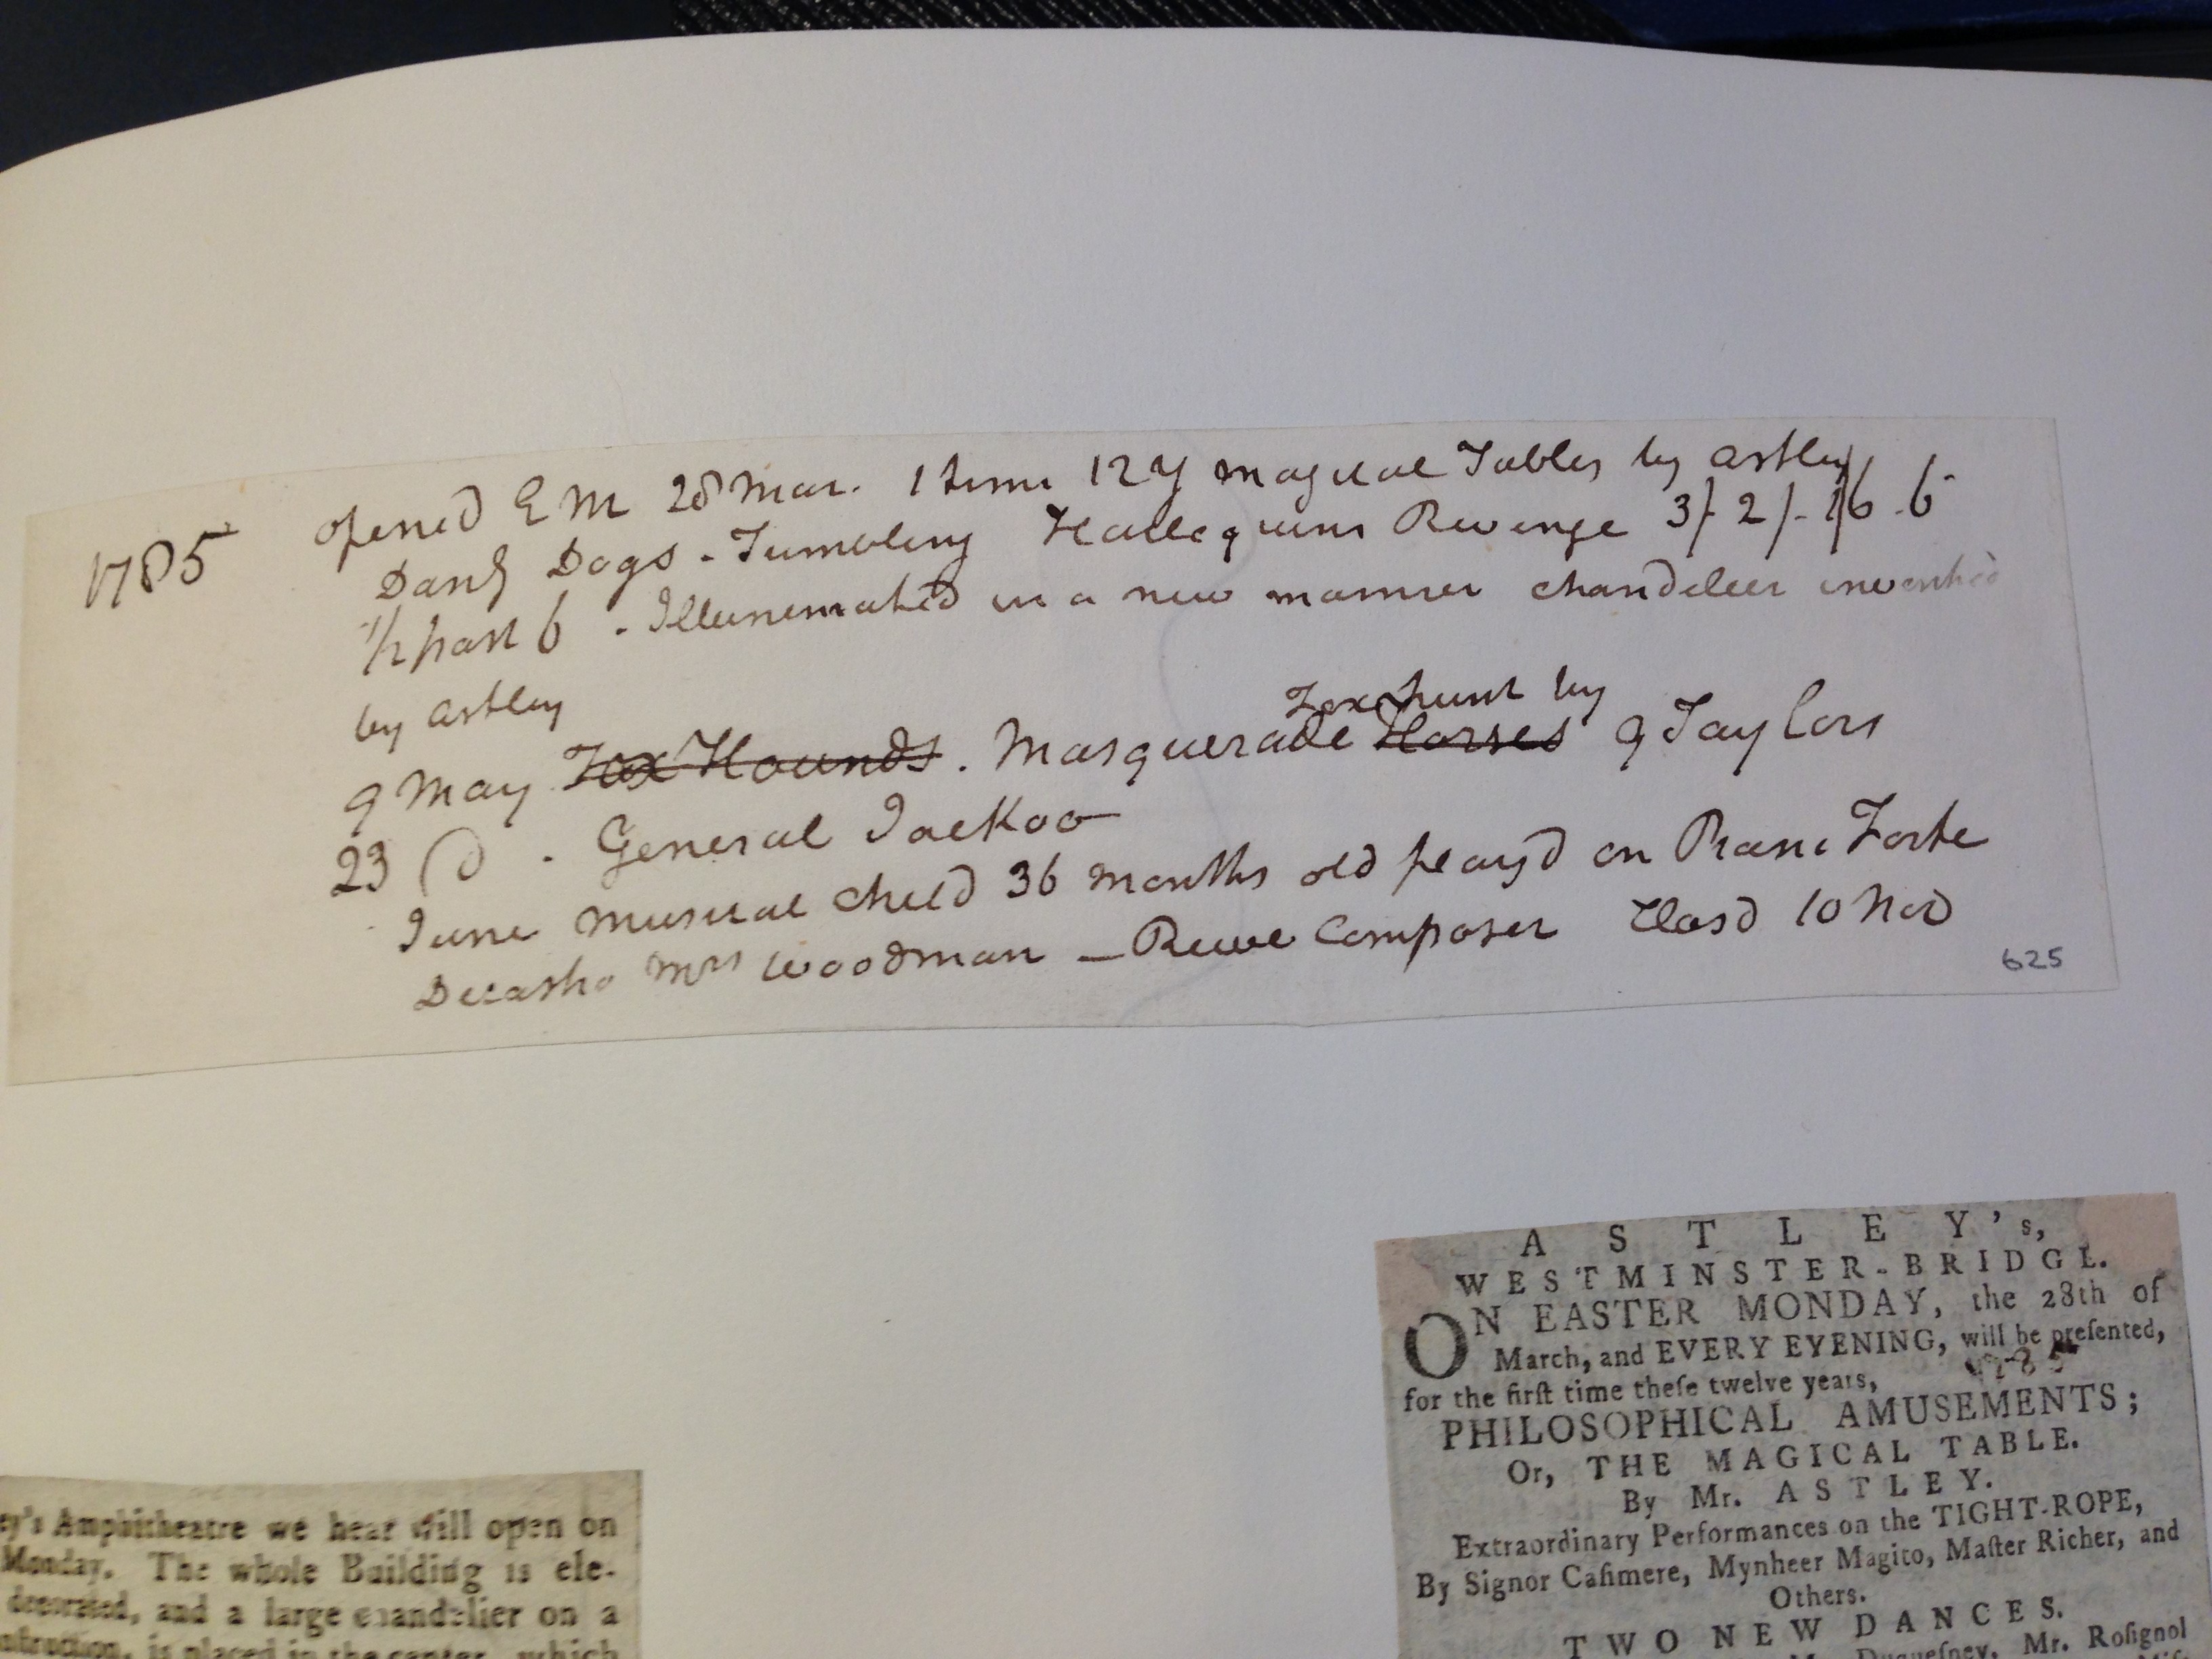 1785 opened E M 28 Mar. 1 time 12 y magical Tables by Astley
Dancg Dogs - Tumbling Harlequins Revenge 3/- 2/- 1/6 - 6
1/2 past 6 - Illuminated in a new manner chandelier invented
by Astley
Fox hunt by
9 May Fox Hounds. Masquerade Horses 9 Taylors
23 do - General Jackoo
June Musical Child 36 Months old playd on Piano Forte
Decastro Mrs Woodman - Reeve Composer Closd 10 Nov
625
ASTLEY's,
WESTMINSTER-BRIDGE.
ON EASTER MONDAY, the 28th of
March, and EVERY EVENING, will be preſented,
1785
for the firſt time theſe twelve years,
PHILOSOPHICAL AMUSEMENTS;
Or, THE MAGICAL TABLE.
By Mr. ASTLEY.
Extraordinary Performances on the TIGHT-ROPE,
By Signor Caſimere, Mynheer Magito, Maſter Richer, and
Others.
TWO NEW DANCES.
Mr. Roſignol
ey's Amphitheatre we hear will open on
Monday. The whole Building is ele-
decorated, and a large chandelier on a
is placed in the center, which